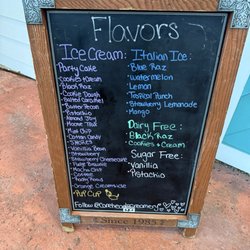 Flavors
Ice Cream:
Party Cake
Cookies + Cream
Black Raz
Cookie Dough
Salted Caramel
Butter Pecan
Pistachio
Almond Joy
Moose Trax
Mud Pie
Cotton Candy
S'mores
Vanilla Bean
Strawberry
Strawberry Cheesecake
Mocha Chip
Coffee
Orange Creamsicle
PUP CUP
Italian Ice:
Blue Raz
Watermelon
Lemon
Tropical Punch
Strawberry Lemonade
Mango
Dairy Free:
Black Raz
Cookies + Cream
Sugar Free:
Vanilla
Pistachio
Since 1985